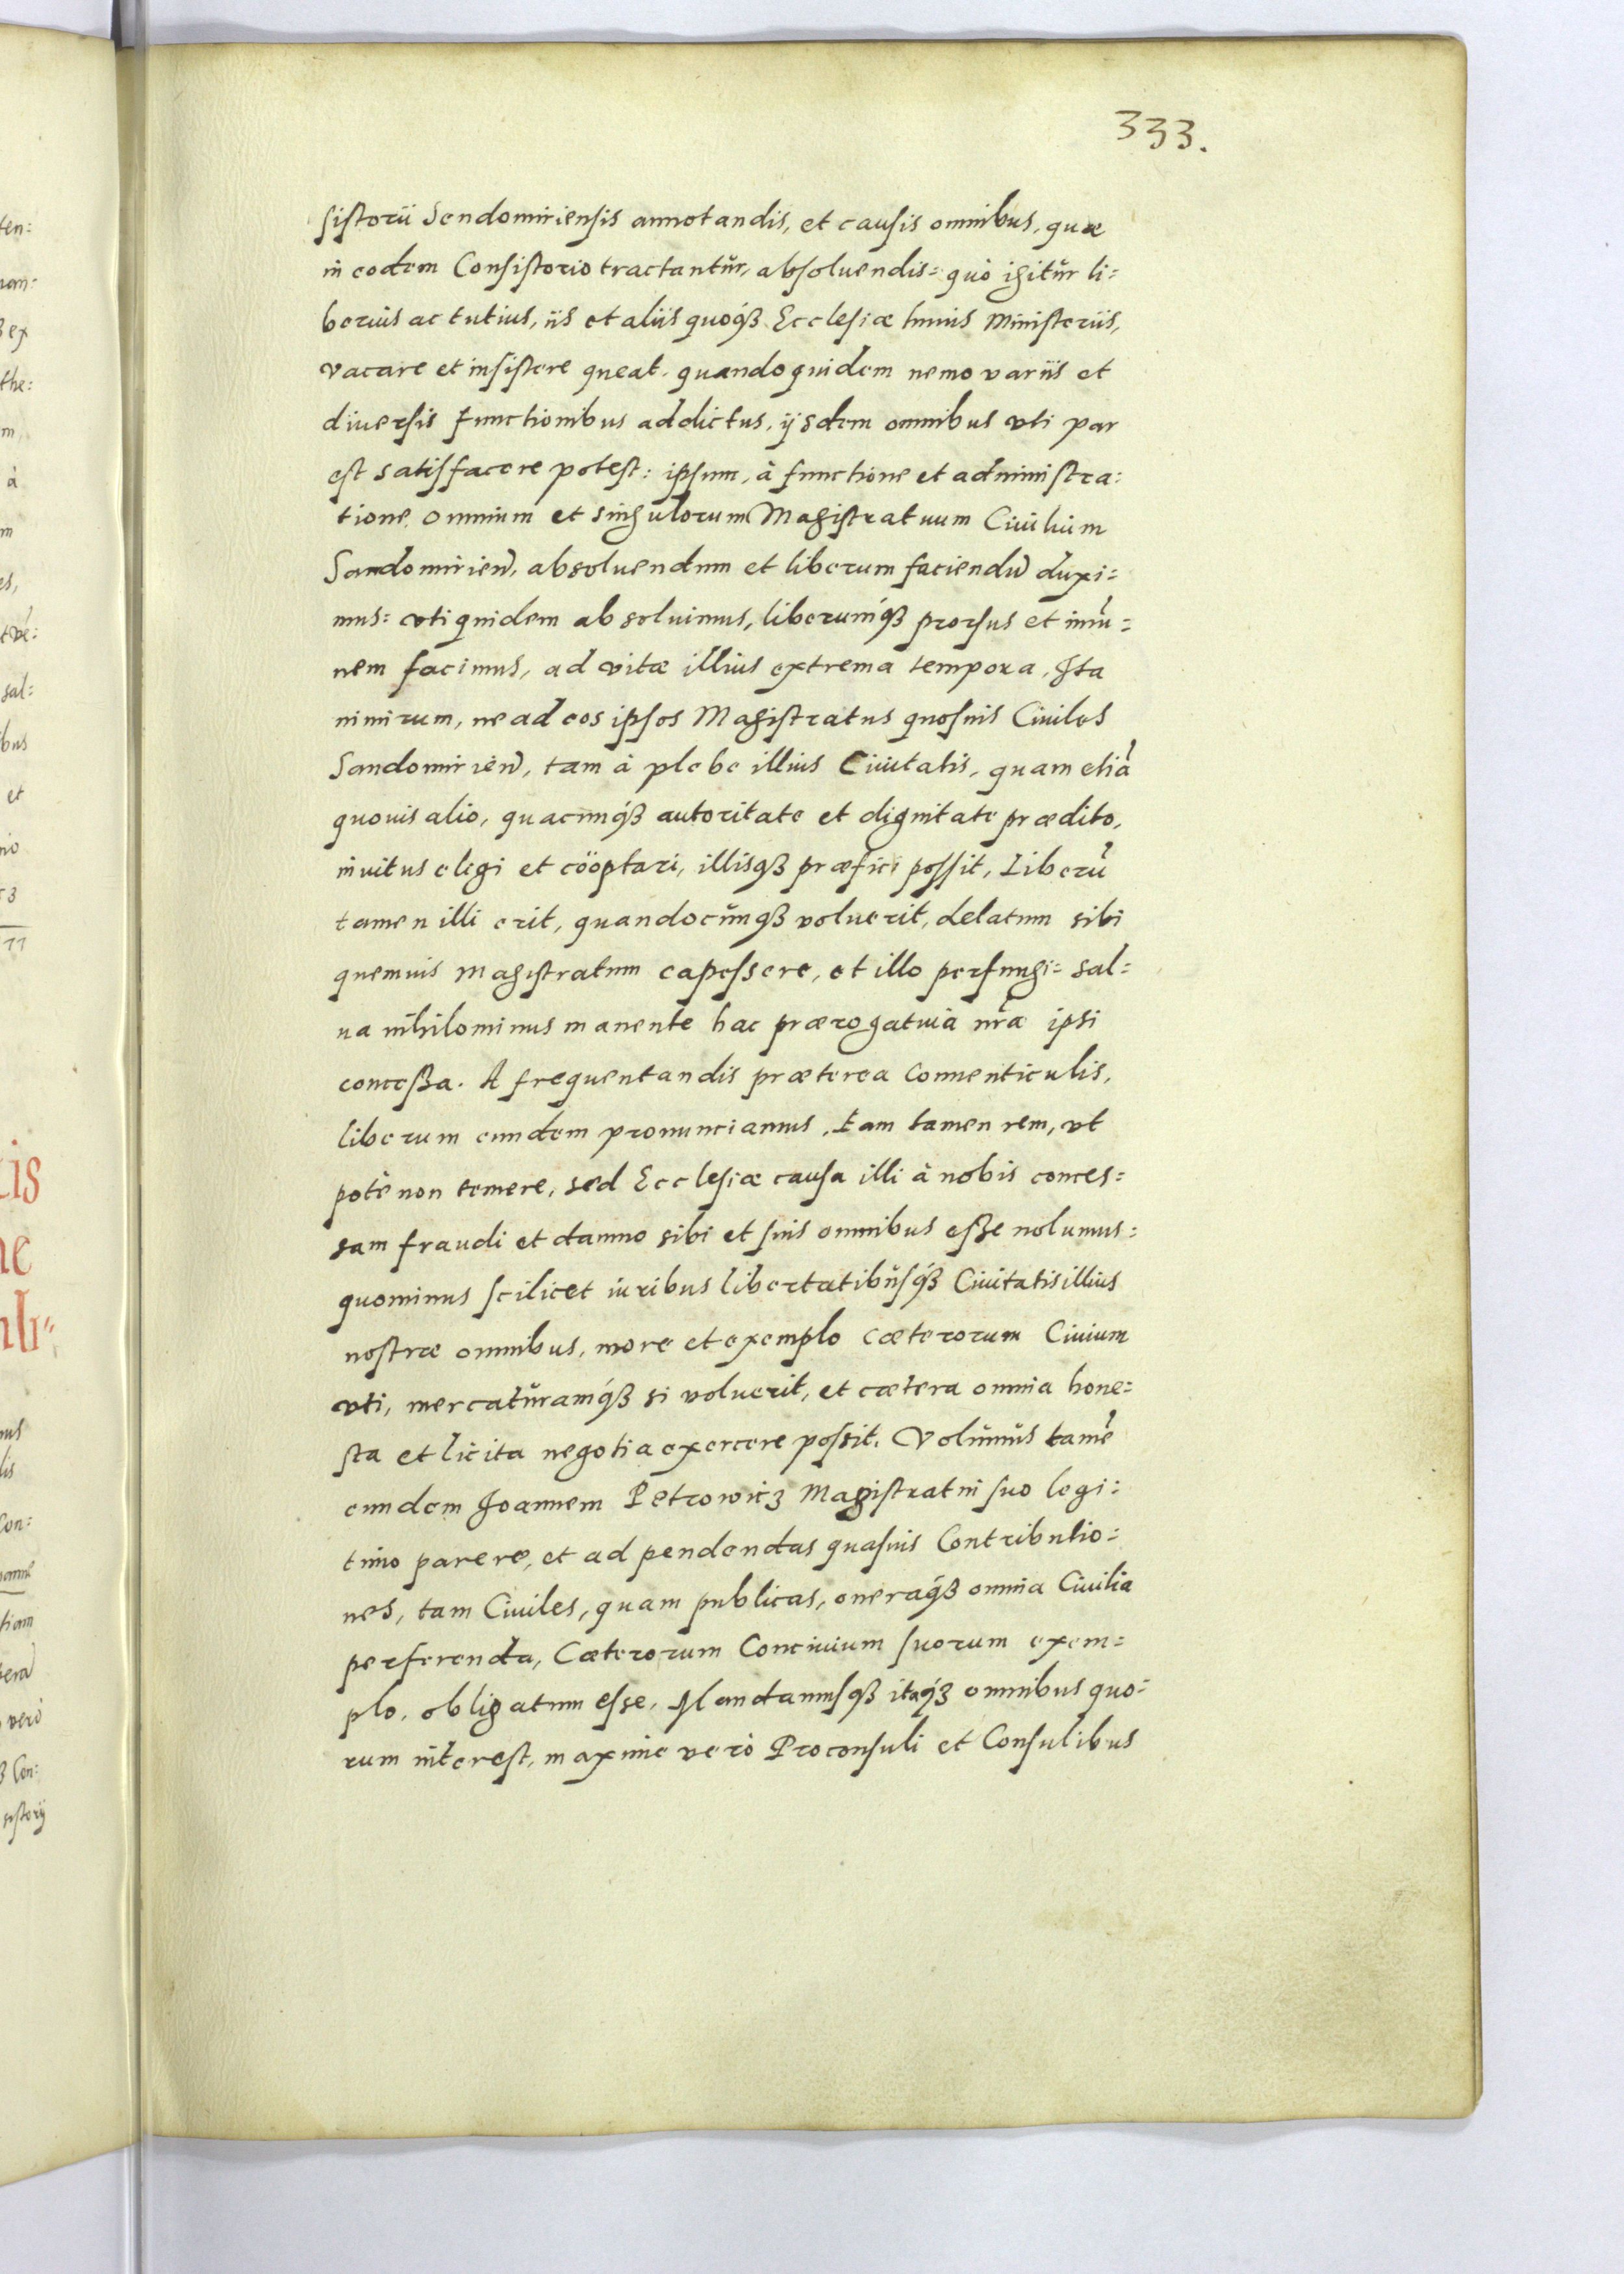 333.
sistorii Sendomiriensis annotandis, et causis omnibus, quæ
in eodem Consistorio tractantŭr, absoluendis: quò igitŭr li:
berius ac tutius, iis et aliis quoq́ꝫ Ecclesiæ huius Ministeriis,
vacare et insistere queat, quandoquidem nemo variis et
diuersis functionibus addictus, ijsdem omnibus vti par
est satisfacere potest: ipsum, à functione et administra:
tione omnium et singulorum Magistratuum Ciuilium
Sandomirieñ, absoluendum et liberum faciendũ duxi:
mus: vti quidem absoluimus, liberumq́ꝫ prorsus et imũ:
nem facimus, ad vitæ illius extrema tempora, Ita
nimirum, ne ad eos ipsos Magistratus quosuis Ciuiles
Sandomirieñ, tam à plebe illius Ciuitatis, quam etiã
quouis alio, quacunq́ꝫ autoritate et dignitate prædito,
inuitus elegi et cöoptari, illisqꝫ præfici possit, Liberũ
tamen illi erit, quandocŭnqꝫ voluerit, delatum sibi
quemuis Magistratum capessere, et illo perfungi: sal:
ua nihilominus manente hac prærogatiua nr̃a ipsi
conceßa. A frequentandis præterea Conuenticulis,
liberum eundem pronunciamus, Eam tamen rem, vt
potè non temere, sed Ecclesiæ causa illi à nobis conces:
sam fraudi et damno sibi et suis omnibus eße nolumus:
quominus scilicet iuribus libertatibŭsq́ꝫ Ciuitatis illius
nostræ omnibus, more et exemplo cæterorum Ciuium
vti, mercatŭramq́ꝫ si voluerit, et cætera omnia hone:
sta et licita negotia exercere possit. Volŭmŭs tamẽ
eundem Joannem Petrowicz Magistratui suo legi:
timo parere, et ad pendendas quasuis Contributio:
nes, tam Ciuiles, quam publicas, oneraq́ꝫ omnia Ciuilia
perferenda, Cæterorum Conciuium suorum exem:
plo, obligatum esse, Mandamusqꝫ itaq́ꝫ omnibus quo:
rum interest, maxime verò Proconsuli et Consulibus